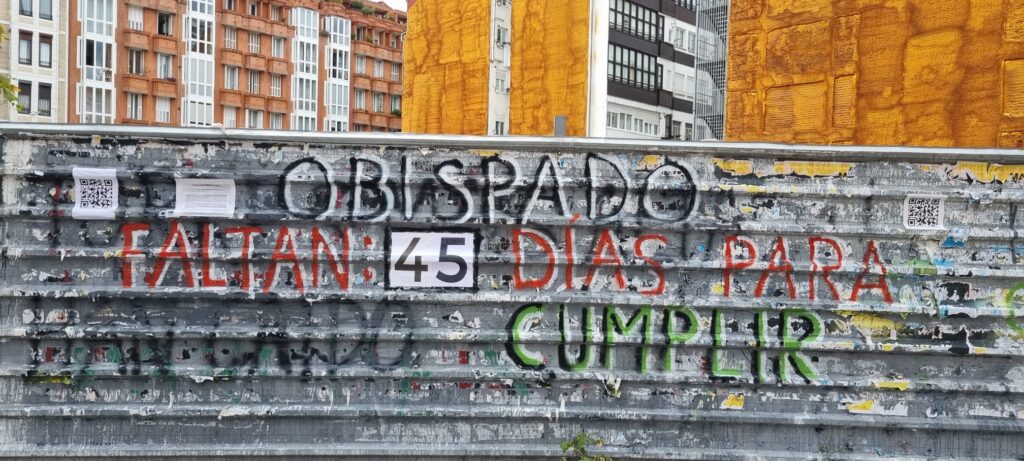 OBISPADO
FALTAN: 45 DÍAS PARA
CUMPLIR